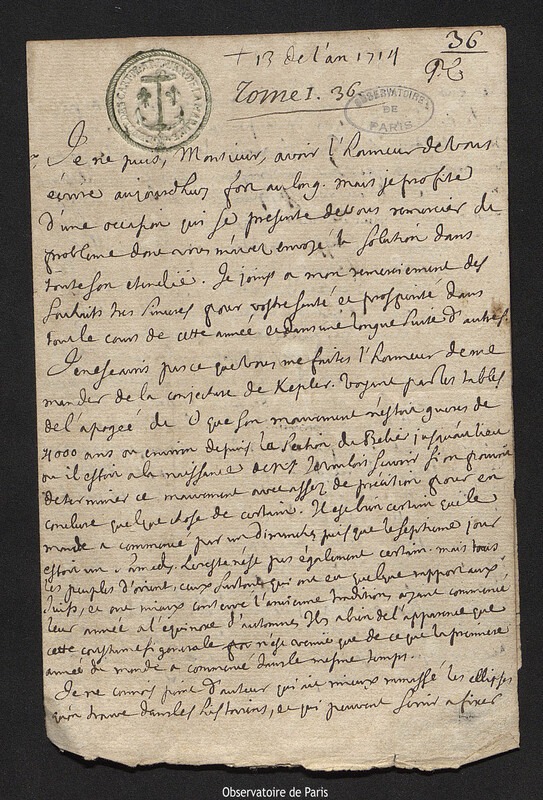 36
+ 13 de l'an 1714
Tome 1. 36
OBSERVATOIRE
DE
PARIS
Je ne puis, Monsieur, avoir l'honneur de vous
écrire aujourdhuy fort au long. mais je profite
d'une occasion qui se presente de vous remercier du
probleme dont vous m'avez envoyé la solution dans
toute son etendüe. Je joins a mon remerciement des
souhaits tres sinceres pour vostre santé et prosperité dans
tout le cours de cette année et dans une longue suite d'autres.
Je ne scavois pas ce que vous me faites l'honneur de me
mander de la conjecture de Kepler. voyant par les tables
de l'apogée du que son mouvement n'estoit gueres de
4000 ans ou environ depuis la section du Belier jusqu'au lieu
ou il estoit a la naissance de je voulois scavoir si on pouvoit
determiner ce mouvement avec assez de precision pour en
conclure quelque chose de certain. Il est bien certain que le
monde a commencé par un dimanche puis que le septieme jour
estoit un samedy. Le reste n'est pas également certain. mais tous
les peuples d'orient, ceux surtout qui ont eu quelque rapport aux
Juifs, et ont mieux conservé l'ancienne tradition, ayant commencé
leur année a l'équinoxe d'automne, Il y a bien de l'apparence que
cette coustume si generale n'est venuë que de ce que la premiere
année du monde a commencé dans le mesme temps.
Je ne connois point d'auteur qui ait mieux ramassé les ellipses
qu'on trouve dans les historiens, et qui peuvent servir a fixer
Observatoire de Paris